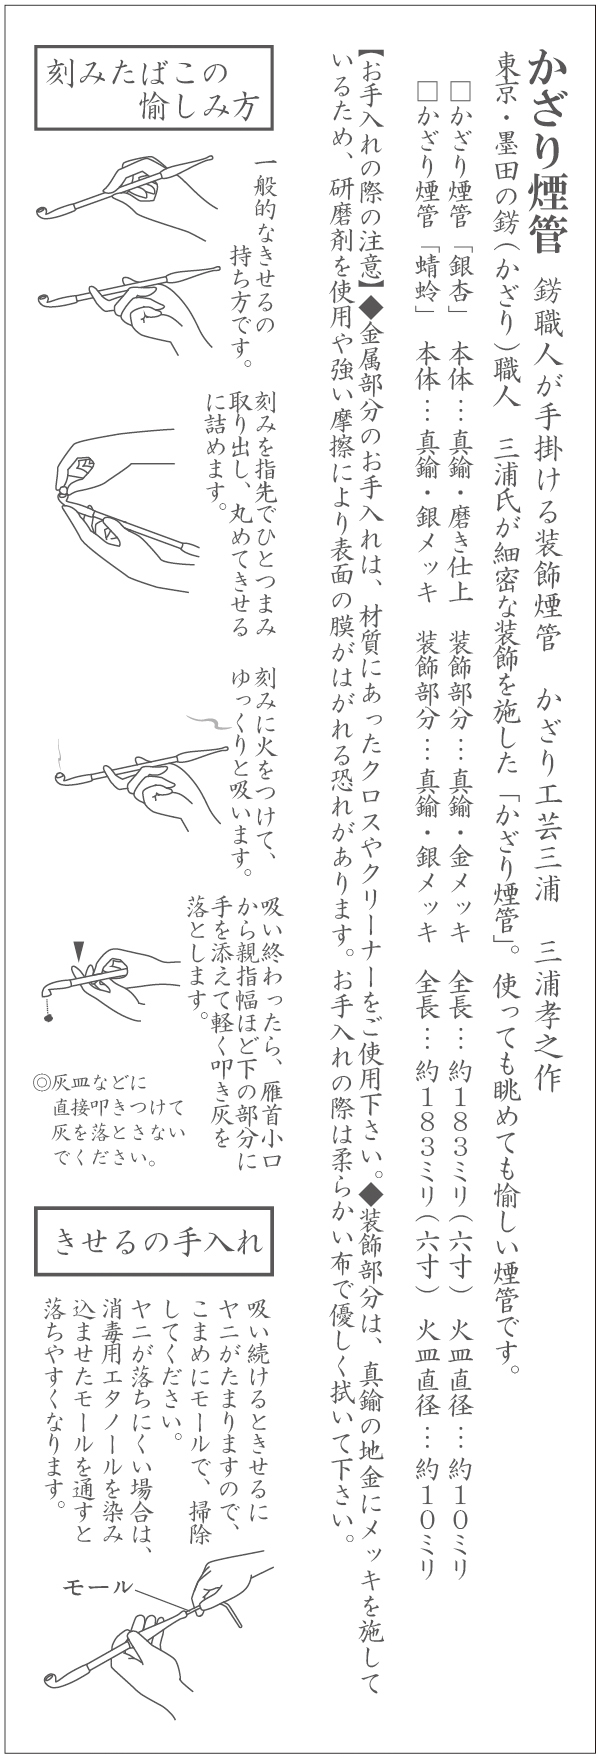 かざり煙管　錺職人が手掛ける装飾煙管　かざり工芸三浦　三浦孝之作
東京・墨田の錺（かざり）職人　三浦氏が細密な装飾を施した「かざり煙管」。使っても眺めても愉しい煙管です。
□かざり煙管「銀杏」　本体…真鍮・磨き仕上　装飾部分…真鍮・金メッキ　全長…約１８３ミリ（六寸）　火皿直径…約１０ミリ
□かざり煙管「蜻蛉」　本体…真鍮・銀メッキ　装飾部分…真鍮・銀メッキ　全長…約１８３ミリ（六寸）　火皿直径…約１０ミリ
【お手入れの際の注意】◆金属部分のお手入れは、材質にあったクロスやクリーナーをご使用下さい。◆装飾部分は、真鍮の地金にメッキを施して
いるため、研磨剤を使用や強い摩擦により表面の膜がはがれる恐れがあります。お手入れの際は柔らかい布で優しく拭いて下さい。
刻みたばこの
愉しみ方
一般的なきせるの
持ち方です。
刻みを指先でひとつまみ
取り出し、丸めてきせる
に詰めます。
刻みに火をつけて、
ゆっくりと吸います。
吸い終わったら、雁首小口
から親指幅ほど下の部分に
手を添えて軽く叩き灰を
落とします。
◎灰皿などに
直接叩きつけて
灰を落とさない
でください。
きせるの手入れ
吸い続けるときせるに
ヤニがたまりますので、
こまめにモールで、掃除
してください。
ヤニが落ちにくい場合は、
消毒用エタノールを染み
込ませたモールを通すと
落ちやすくなります。
モール